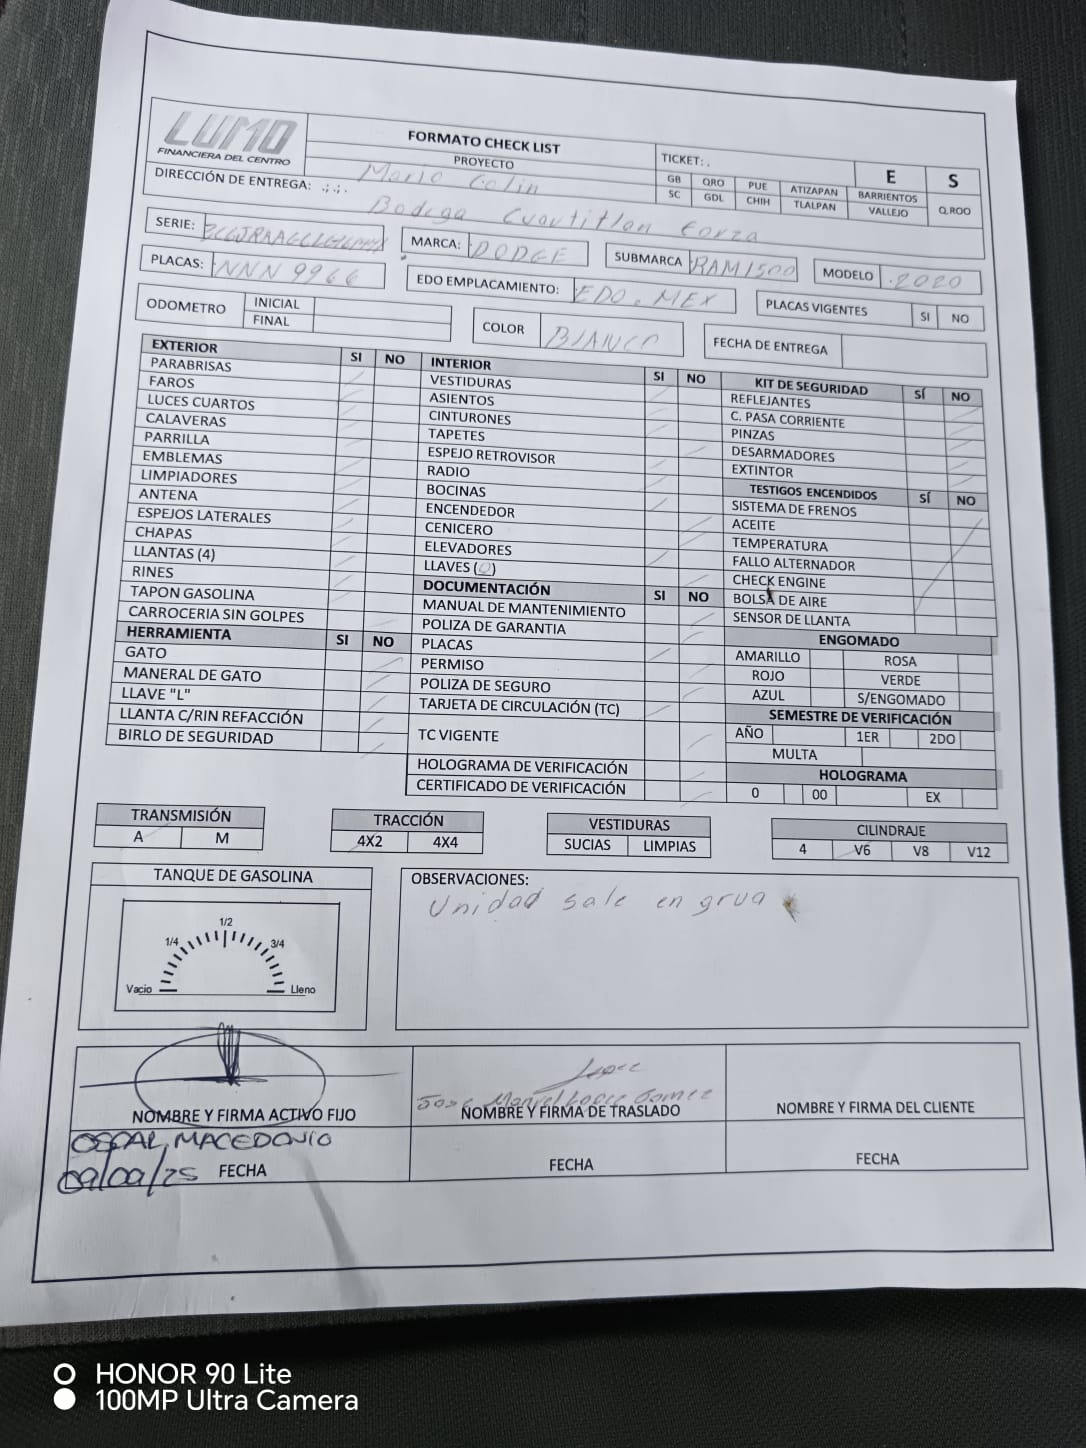 LUMO
FINANCIERA DEL CENTRO
FORMATO CHECK LIST
PROYECTO
Mario Colin
TICKET: .
E S
GB QRO PUE ATIZAPAN BARRIENTOS
SC GDL CHIH TLALPAN VALLEJO Q.ROO
DIRECCIÓN DE ENTREGA: .;.;.
Bodega Cuautitlan
SERIE:
MARCA: DODGE
SUBMARCA RAM1500
MODELO .2020
PLACAS: NNN 9966
EDO EMPLACAMIENTO: EDO. MEX
PLACAS VIGENTES SI NO
ODOMETRO INICIAL
FINAL
COLOR BLANCO
FECHA DE ENTREGA
EXTERIOR SI NO
PARABRISAS
FAROS
LUCES CUARTOS
CALAVERAS
PARRILLA
EMBLEMAS
LIMPIADORES
ANTENA
ESPEJOS LATERALES
CHAPAS
LLANTAS (4)
RINES
TAPON GASOLINA
CARROCERIA SIN GOLPES
HERRAMIENTA SI NO
GATO
MANERAL DE GATO
LLAVE "L"
LLANTA C/RIN REFACCIÓN
BIRLO DE SEGURIDAD
INTERIOR SI NO
VESTIDURAS
ASIENTOS
CINTURONES
TAPETES
ESPEJO RETROVISOR
RADIO
BOCINAS
ENCENDEDOR
CENICERO
ELEVADORES
LLAVES ( )
DOCUMENTACIÓN SI NO
MANUAL DE MANTENIMIENTO
POLIZA DE GARANTIA
PLACAS
PERMISO
POLIZA DE SEGURO
TARJETA DE CIRCULACIÓN (TC)
TC VIGENTE
HOLOGRAMA DE VERIFICACIÓN
CERTIFICADO DE VERIFICACIÓN
KIT DE SEGURIDAD SÍ NO
REFLEJANTES
C. PASA CORRIENTE
PINZAS
DESARMADORES
EXTINTOR
TESTIGOS ENCENDIDOS SÍ NO
SISTEMA DE FRENOS
ACEITE
TEMPERATURA
FALLO ALTERNADOR
CHECK ENGINE
BOLSA DE AIRE
SENSOR DE LLANTA
ENGOMADO
AMARILLO ROSA
ROJO VERDE
AZUL S/ENGOMADO
SEMESTRE DE VERIFICACIÓN
AÑO 1ER 2DO
MULTA
HOLOGRAMA
0 00 EX
TRANSMISIÓN
A M
TRACCIÓN
4X2 4X4
VESTIDURAS
SUCIAS LIMPIAS
CILINDRAJE
4 V6 V8 V12
TANQUE DE GASOLINA
1/2
1/4 3/4
Vacio Lleno
OBSERVACIONES:
Unidad sale en grua
Lopez
Jose Manuel Lopez Gomez
NOMBRE Y FIRMA ACTIVO FIJO
NOMBRE Y FIRMA DE TRASLADO
NOMBRE Y FIRMA DEL CLIENTE
MACEDONIO
09/09/25 FECHA
FECHA
FECHA
HONOR 90 Lite
100MP Ultra Camera